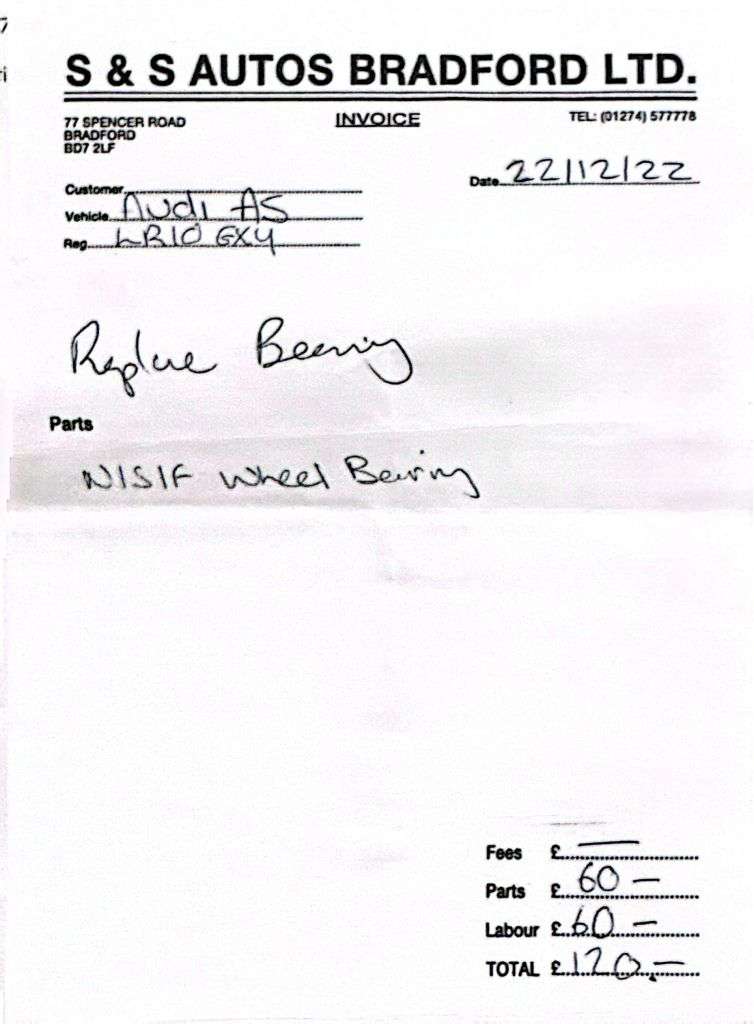 S & S AUTOS BRADFORD LTD.
77 SPENCER ROAD
BRADFORD
BD7 2LF
INVOICE
TEL: (01274) 577778
Date 22/12/22
Customer
Vehicle Audi A5
Reg LR10 GXY
Replace Bearing
Parts
Wheel Bearing
Fees £ —
Parts £ 60 —
Labour £ 60 —
TOTAL £ 120.—